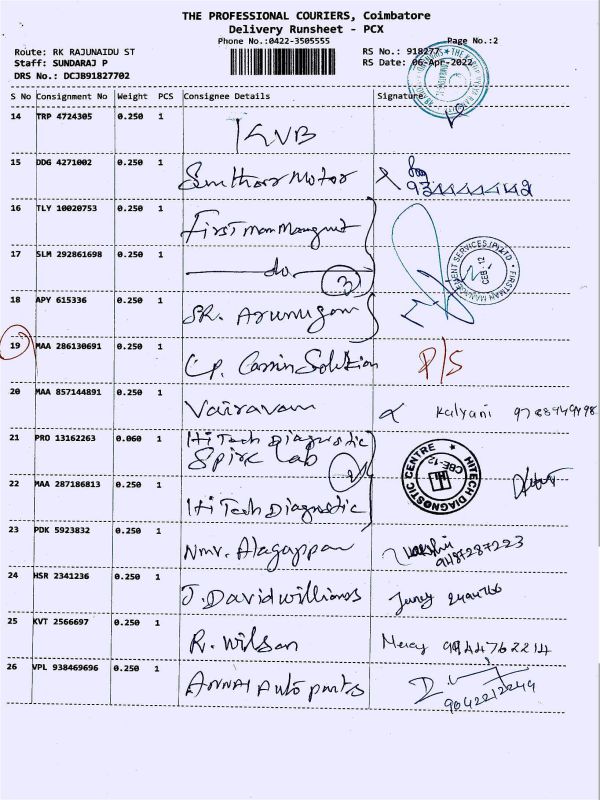 THE PROFESSIONAL COURIERS, Coimbatore
Delivery Runsheet - PCX
Phone No.:0422-3505555
Page No.:2
Route: RK RAJUNAIDU ST
RS No.: 918277
Staff: SUNDARAJ P
RS Date: 06-Apr-2022
DRS No.: DCJB91827702
S No Consignment No Weight PCS Consignee Details Signature
14 TRP 4724305 0.250 1 KVB
15 DDG 4271002 0.250 1 Motor
16 TLY 10020753 0.250 1 First man
17 SLM 292861698 0.250 1 do. 3
FIRSTMAN MANAGEMENT SERVICES (P) LTD
CBE-12
18 APY 615336 0.250 1 SR. Arumugam
19 MAA 286130691 0.250 1 C.P. Solution P/S
20 MAA 857144891 0.250 1 Vairavan Kalyani
21 PRO 13162263 0.060 1 Hi Tech Diagnostic
Spirk Lab
HITECH DIAGNOSTIC CENTRE
CBE-12
H
22 MAA 287186813 0.250 1 Hi Tech Diagnostic
23 PDK 5923832 0.250 1 Nmr. Alagappan 9487287223
24 HSR 2341236 0.250 1 J. David williams
25 KVT 2566697 0.250 1 R. Wilson Mercy 9944762214
26 VPL 938469696 0.250 1 ANNAI Auto parts
9042212249